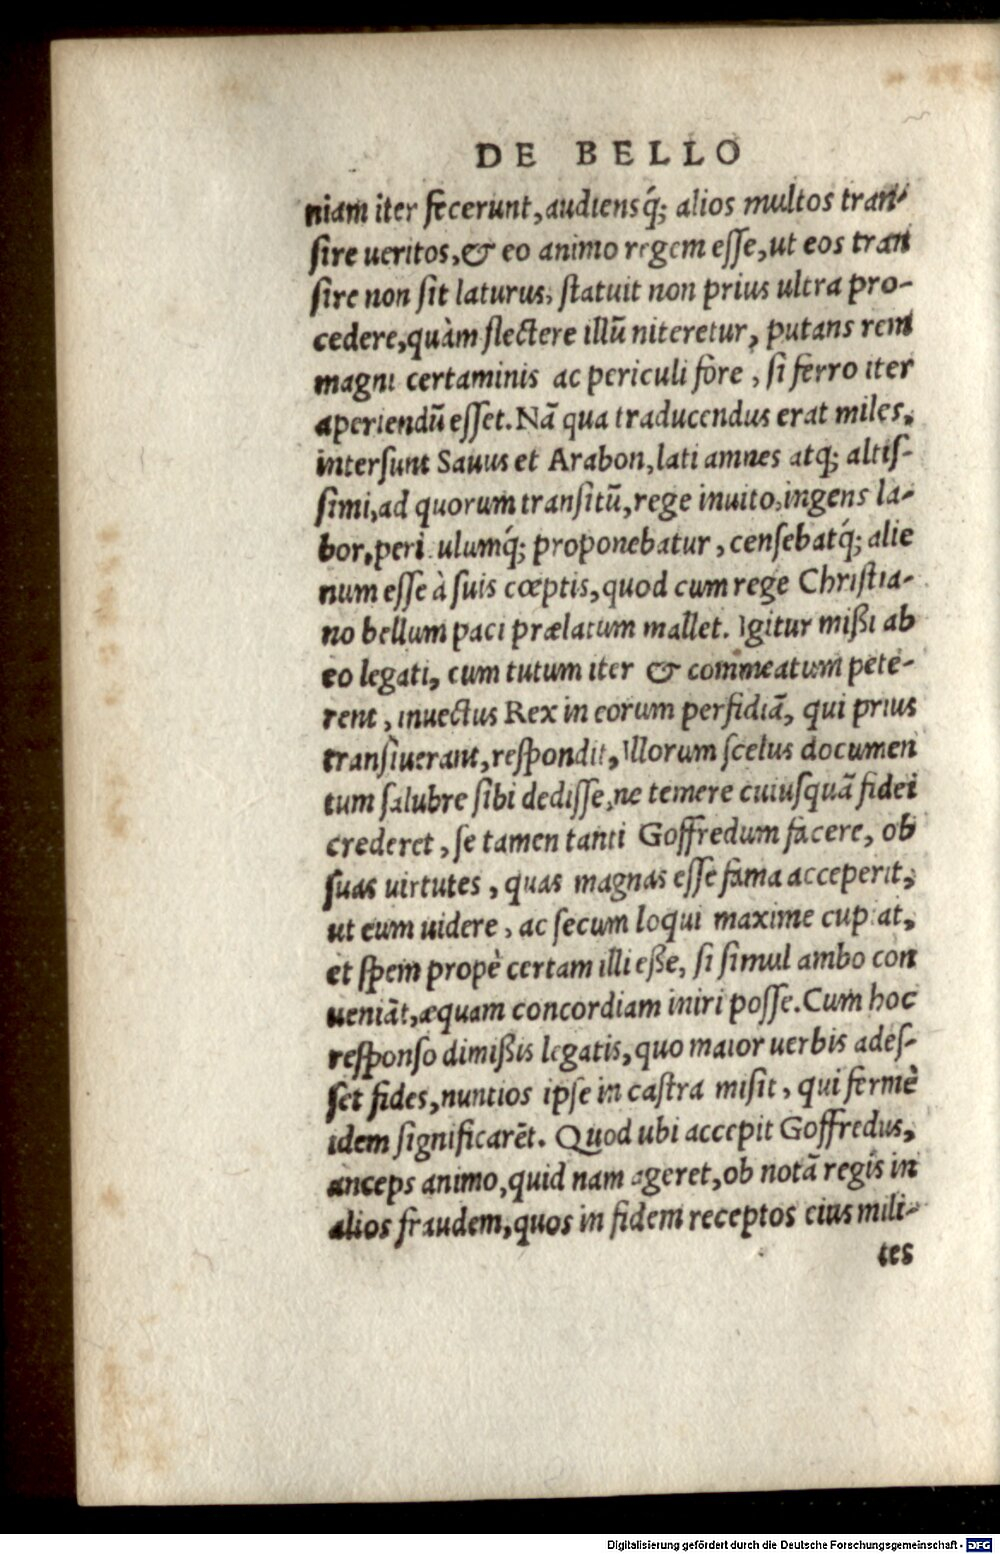 DE BELLO
niam iter fecerunt, audiensq́; alios multos tran-
sire ueritos, & eo animo regem esse, ut eos tran
sire non sit laturus, statuit non prius ultra pro-
cedere, quàm flectere illũ niteretur, putans rem
magni certaminis ac periculi fore, si ferro iter
aperiendũ esset. Nã qua traducendus erat miles,
intersunt Sauus et Arabon, lati amnes atq; altis-
simi, ad quorum transitũ, rege inuito, ingens la-
bor, peri ulumq́; proponebatur, censebatq́; alie
num esse à suis cœptis, quod cum rege Christia-
no bellum paci prælatum mallet. Igitur mißi ab
eo legati, cum tutum iter & commeatum pete-
rent, inuectus Rex in eorum perfidiã, qui prius
transiuerant, respondit, Illorum scelus documen
tum salubre sibi dedisse, ne temere cuiusquã fidei
crederet, se tamen tanti Goffredum facere, ob
suas uirtutes, quas magnas esse fama acceperit,
ut eum uidere, ac secum loqui maxime cupiat,
et spem propè certam illi eße, si simul ambo con
ueniãt, æquam concordiam iniri posse. Cum hoc
responso dimißis legatis, quo maior uerbis ades-
set fides, nuntios ipse in castra misit, qui fermè
idem significarẽt. Quod ubi accepit Goffredus,
anceps animo, quid nam ageret, ob notã regis in
alios fraudem, quos in fidem receptos eius mili-
tes
Digitalisierung gefördert durch die Deutsche Forschungsgemeinschaft - DFG